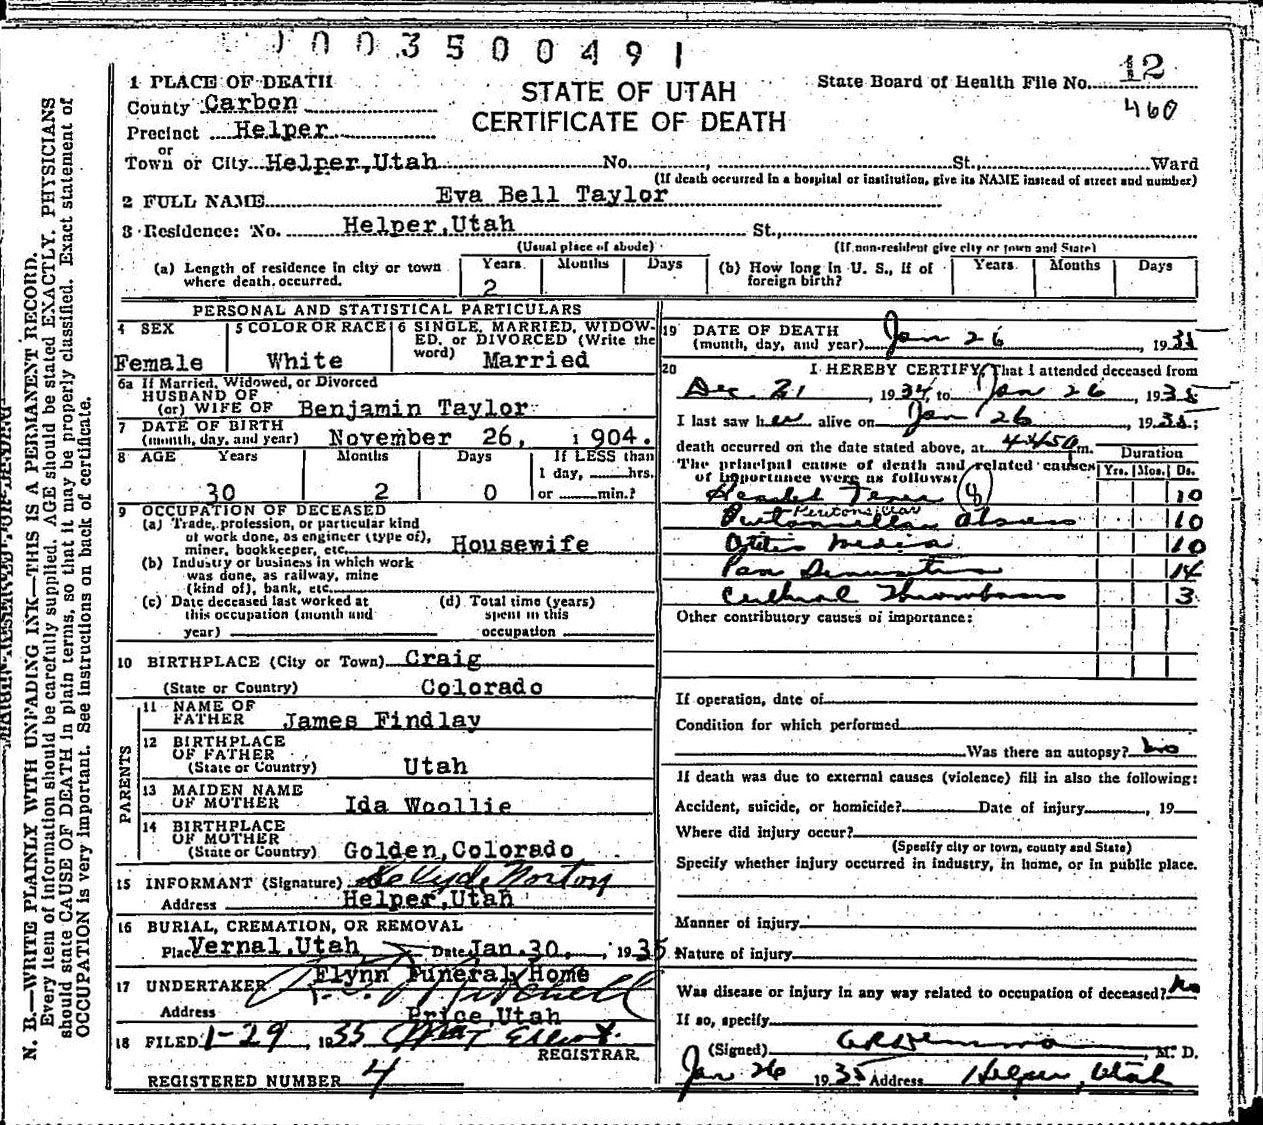 0003500491
1 PLACE OF DEATH
County Carbon
Precinct Helper
or
Town or City Helper, Utah No. St. Ward
STATE OF UTAH
CERTIFICATE OF DEATH
State Board of Health File No. 12
460
(If death occurred in a hospital or institution, give its NAME instead of street and number)
2 FULL NAME Eva Bell Taylor
3 Residence: No. Helper, Utah St.,
(Usual place of abode) (If non-resident give city or town and State)
(a) Length of residence in city or town where death occurred. Years 2 Months Days
(b) How long in U. S., if of foreign birth? Years Months Days
PERSONAL AND STATISTICAL PARTICULARS
4 SEX Female
5 COLOR OR RACE White
6 SINGLE, MARRIED, WIDOWED, or DIVORCED (Write the word) Married
6a If Married, Widowed, or Divorced
HUSBAND OF
(or) WIFE OF Benjamin Taylor
7 DATE OF BIRTH
(month, day, and year) November 26, 1904.
8 AGE Years 30 Months 2 Days 0 If LESS than 1 day, hrs. or min.?
9 OCCUPATION OF DECEASED
(a) Trade, profession, or particular kind
of work done, as engineer (type of),
miner, bookkeeper, etc. Housewife
(b) Industry or business in which work
was done, as railway, mine
(kind of), bank, etc.
(c) Date deceased last worked at
this occupation (month and
year)
(d) Total time (years)
spent in this
occupation
10 BIRTHPLACE (City or Town) Craig
(State or Country) Colorado
PARENTS
11 NAME OF
FATHER James Findlay
12 BIRTHPLACE
OF FATHER
(State or Country) Utah
13 MAIDEN NAME
OF MOTHER Ida Woollie
14 BIRTHPLACE
OF MOTHER
(State or Country) Golden, Colorado
15 INFORMANT (Signature) Norton
Address Helper, Utah
16 BURIAL, CREMATION, OR REMOVAL
Place Vernal, Utah Date Jan. 30, 1935
17 UNDERTAKER Flynn Funeral Home
Mitchell
Address Price, Utah
18 FILED 1-29, 1935
REGISTRAR.
REGISTERED NUMBER 4
19 DATE OF DEATH
(month, day, and year) Jan 26, 1935
20 I HEREBY CERTIFY, That I attended deceased from
Dec. 21, 1934, to Jan 26, 1935
I last saw her alive on Jan 26, 1935;
death occurred on the date stated above, at m.
The principal cause of death and related causes
of importance were as follows:
Duration
Yrs. Mos. Ds.
10
Peritonsillar abscess 10
Otitis media 10
Pan 14
Thrombosis 3
Other contributory causes of importance:
If operation, date of
Condition for which performed
Was there an autopsy? no
If death was due to external causes (violence) fill in also the following:
Accident, suicide, or homicide? Date of injury, 19
Where did injury occur?
(Specify city or town, county and State)
Specify whether injury occurred in industry, in home, or in public place.
Manner of injury
Nature of injury
Was disease or injury in any way related to occupation of deceased? No
If so, specify
(Signed) M. D.
Jan 26 1935 Address Helper, Utah
N. B.—WRITE PLAINLY WITH UNFADING INK—THIS IS A PERMANENT RECORD.
Every item of information should be carefully supplied. AGE should be stated EXACTLY. PHYSICIANS
should state CAUSE OF DEATH in plain terms, so that it may be properly classified. Exact statement of
OCCUPATION is very important. See instructions on back of certificate.